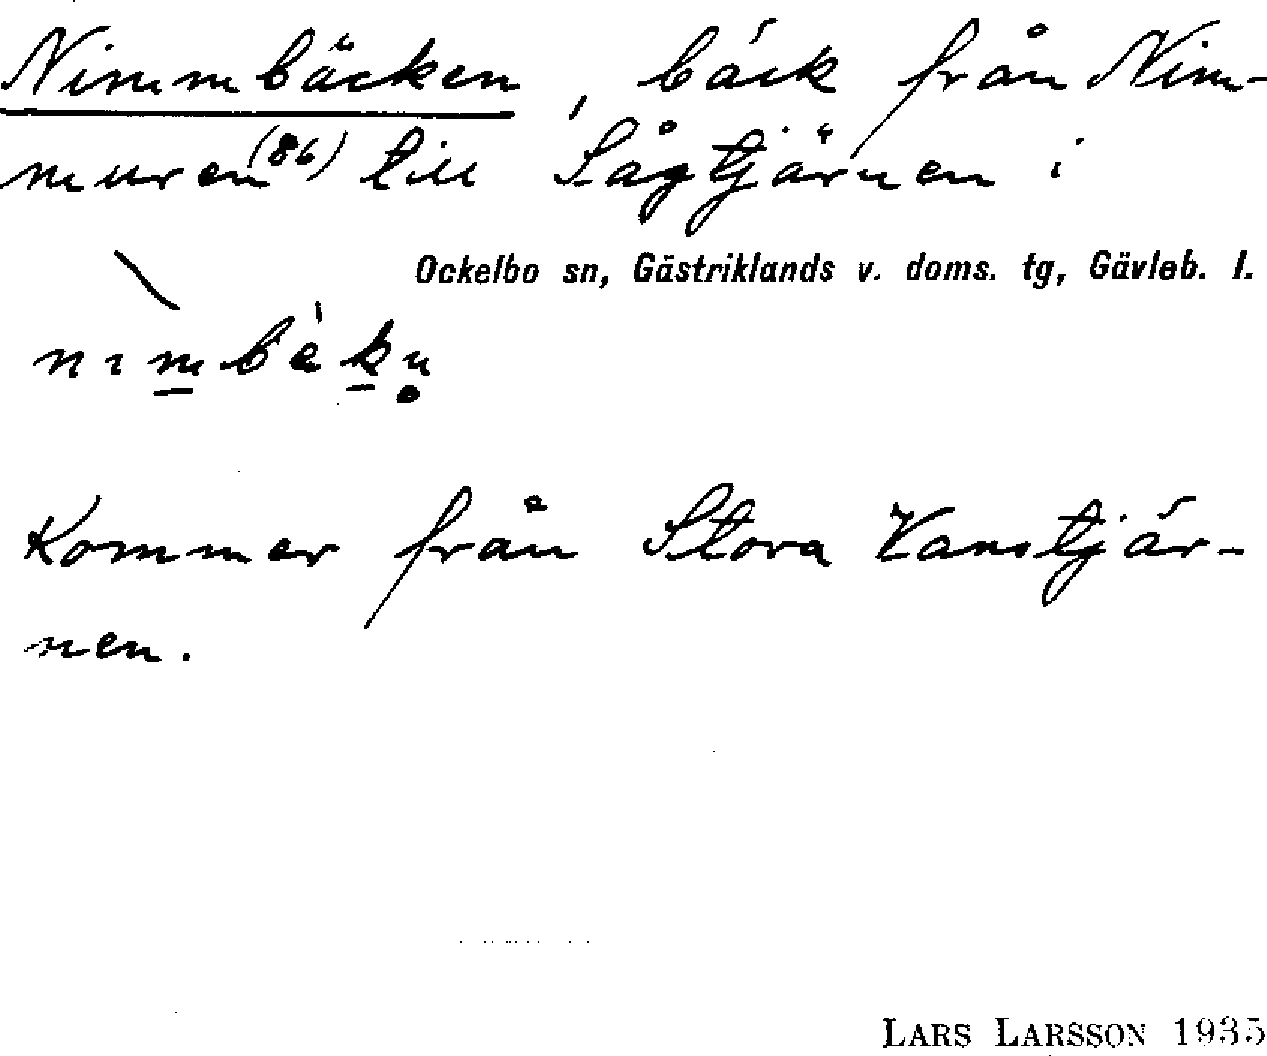 Nimmbäcken, bäck från Nim-
muren (86) till Sågtjärnen i
Ockelbo sn, Gästriklands v. doms. tg, Gävleb. l.
Kommer från Stora Vanstjär-
nen.
LARS LARSSON 1935